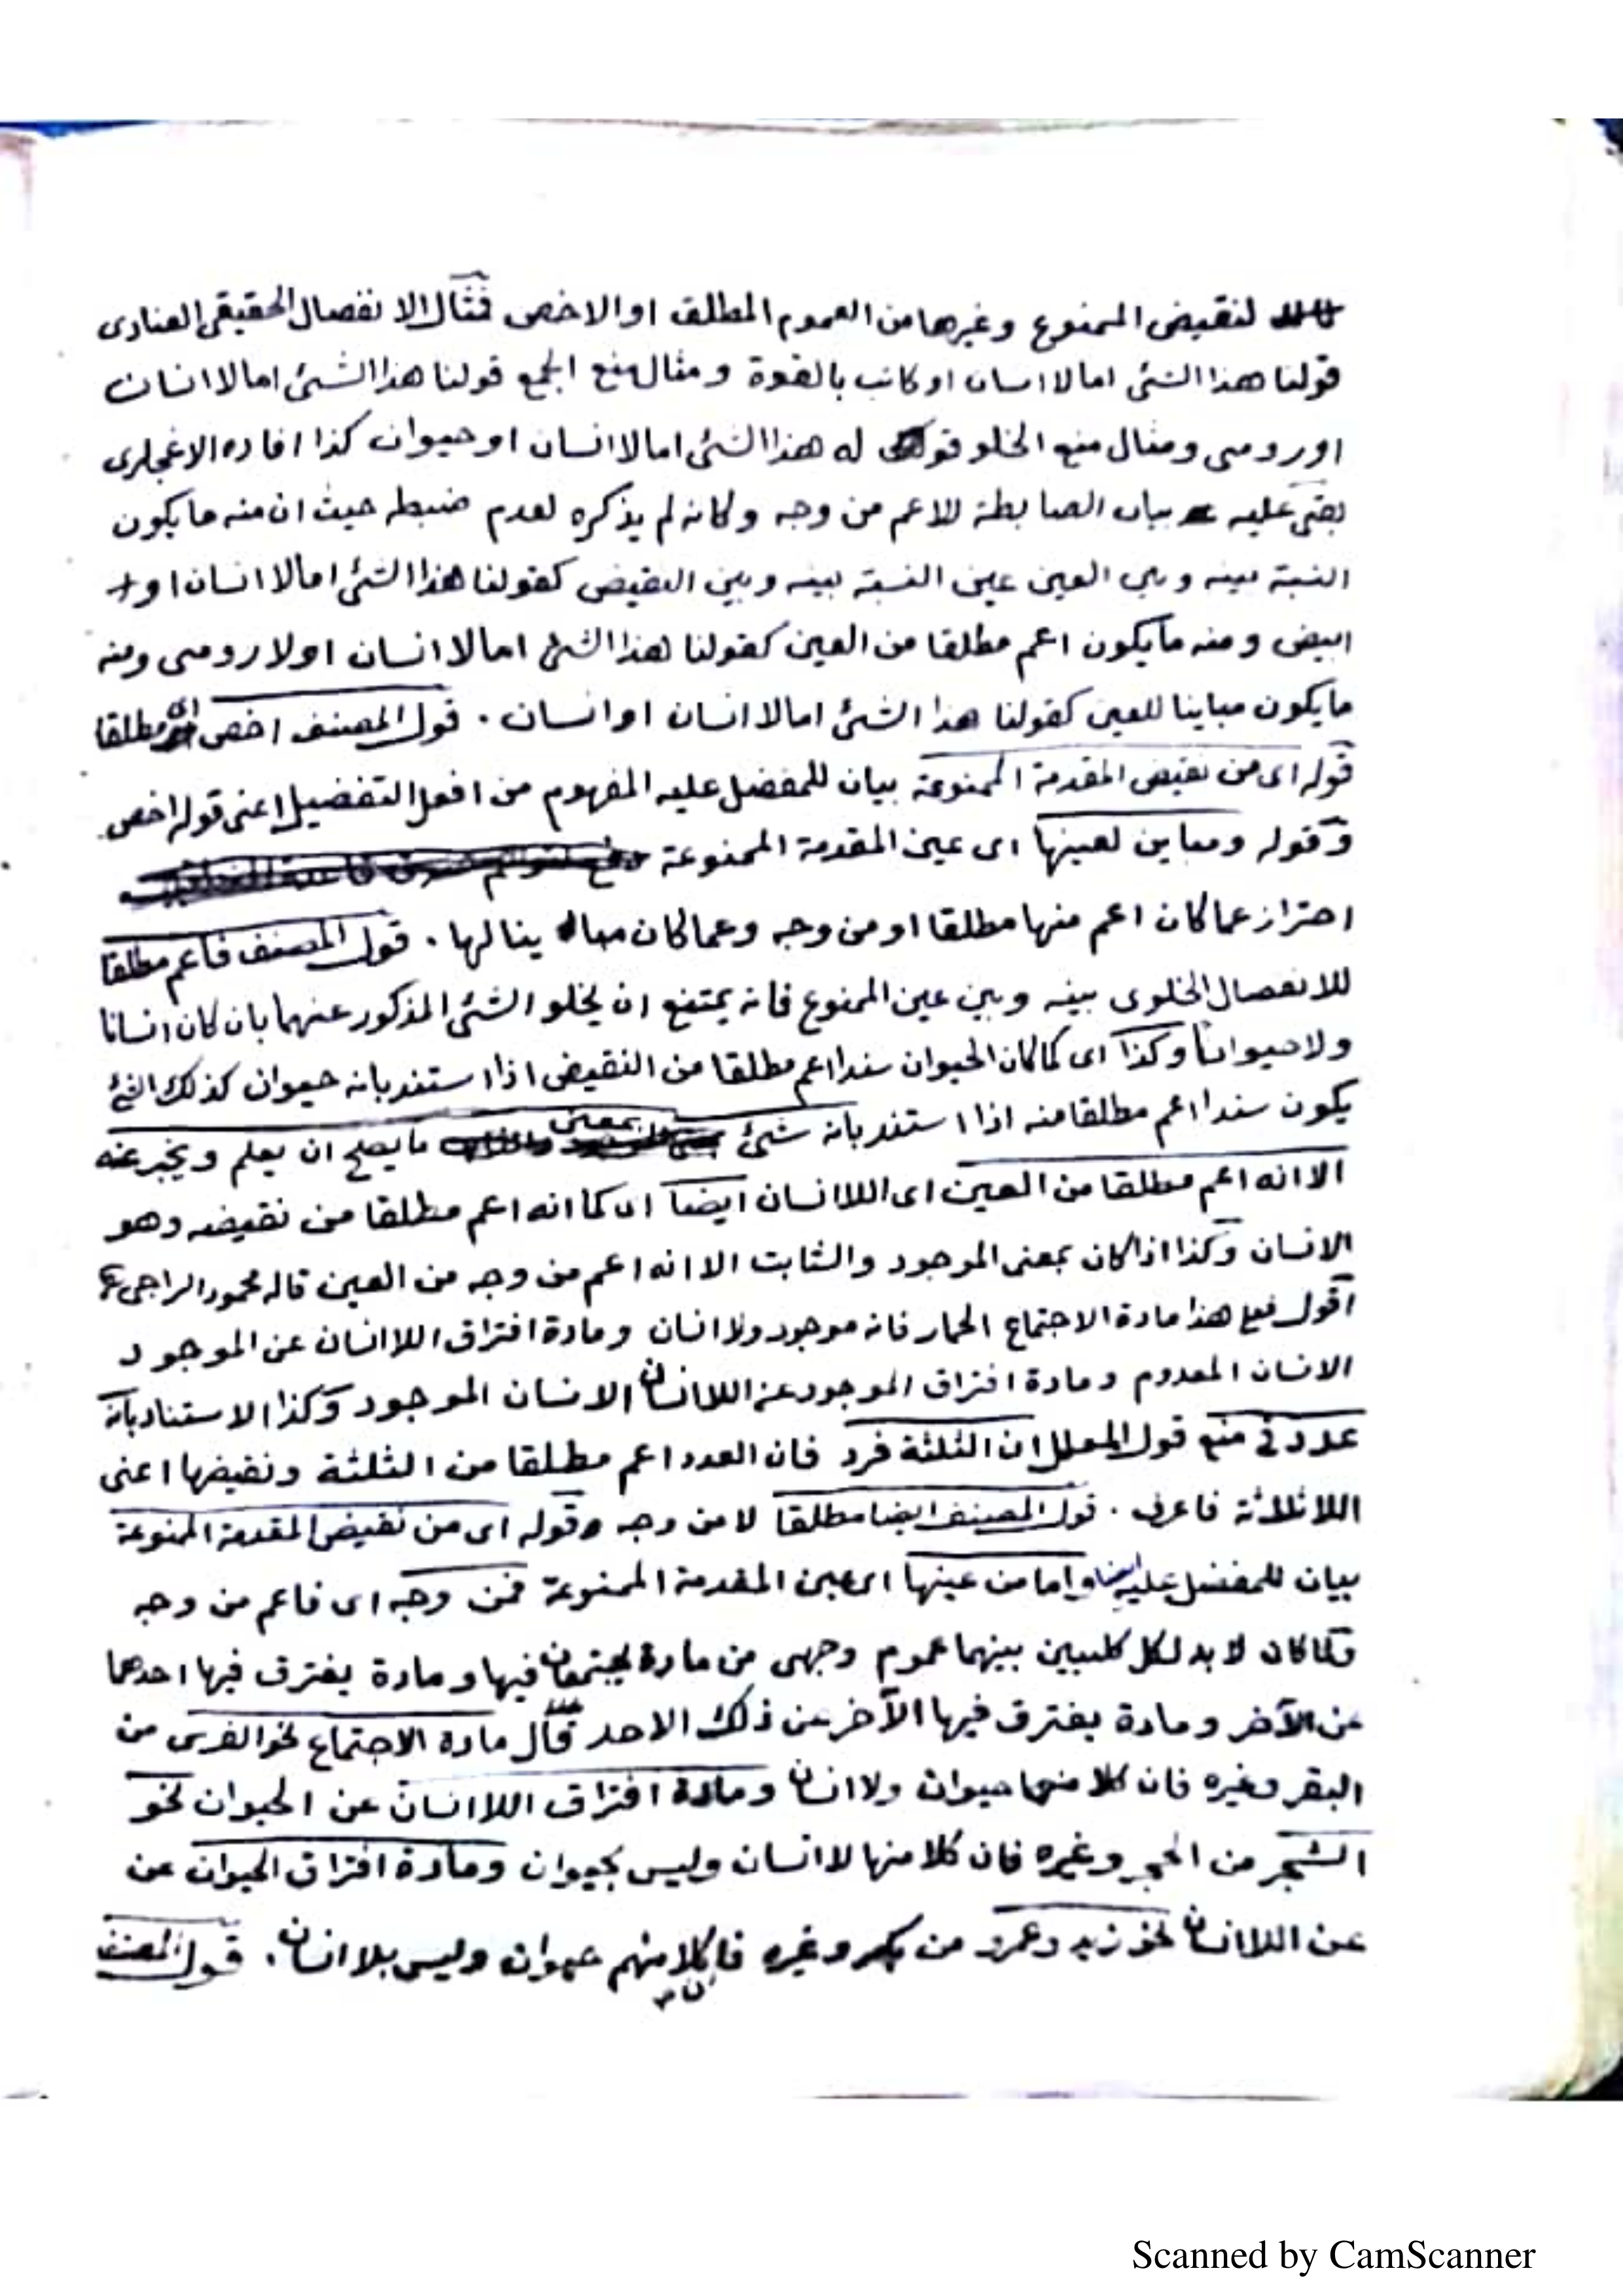 لنقيض الممنوع وغيرها من العموم المطلق او الاخص فمثال الانفصال الحقيقى العنادى
قولنا هذا الشئ اما لا انسان او كاتب بالقوة ومثال منع الجمع قولنا هذا الشئ اما لا انسان
او رومى ومثال منع الخلو له هذا الشئ اما لا انسان او حيوان كذا افاده الاغجلرى
بقى عليه بيان الضابطة للاعم من وجه وكانه لم يذكره لعدم ضبطه حيث ان منه ما يكون
النسبة بينه وبين العين عين النسبة بينه وبين النقيض كقولنا هذا الشئ اما لا انسان او
ابيض ومنه ما يكون اعم مطلقا من العين كقولنا هذا الشئ اما لا انسان او لا رومى ومنه
ما يكون مباينا للعين كقولنا هذا الشئ اما لا انسان او انسان . قول المصنف اخص اى مطلقا
قوله اى من نقيض المقدمة الممنوعة بيان للمفضل عليه المفهوم من افعل التفضيل اعنى قوله اخص
وقوله ومباين لعينها اى عين المقدمة الممنوعة
احتراز عما كان اعم منها مطلقا او من وجه وعما كان ينالها . قول المصنف فاعم مطلقا
للانفصال الخلوى بينه وبين عين الممنوع فانه يمتنع ان يخلو الشئ المذكور عنهما بان كان انسانا
ولا حيوانا وكذا اى كما كان الحيوان سندا اعم مطلقا من النقيض اذا استند بانه حيوان كذلك الشئ
يكون سندا اعم مطلقا منه اذا استند بانه شئ بمعنى ما يصلح ان يعلم ويخبر عنه
الا انه اعم مطلقا من العين اى اللاانسان ايضا اى كما انه اعم مطلقا من نقيضه وهو
الانسان وكذا اذا كان بمعنى الموجود والثابت الا انه اعم من وجه من العين قاله محمود الراجى
اقول فعلى هذا مادة الاجتماع الحمار فانه موجود ولا انسان ومادة افتراق اللاانسان عن الموجود
الانسان المعدوم ومادة افتراق الموجود عن اللاانسان الانسان الموجود وكذا الاستناد بانه
عدد فى منع قول المعلل ان الثلثة فرد فان العدد اعم مطلقا من الثلثة ونقيضها اعنى
اللاثلاثة فاعرف . قول المصنف ايضا مطلقا لا من وجه وقوله اى من نقيض المقدمة الممنوعة
بيان للمفضل عليه ايضا واما من عينها اى عين المقدمة الممنوعة فمن وجه اى فاعم من وجه
ولما كان لا بد لكل كليين بينهما عموم وجهى من مادة يجتمعان فيها ومادة يفترق فيها احدهما
عن الآخر ومادة يفترق فيها الآخر عن ذلك الاحد قال مادة الاجتماع نحو الفرس من
البقر وغيره فان كلا منهما حيوان ولا انسان ومادة افتراق اللاانسان عن الحيوان نحو
الشجر من الحجر وغيره فان كلا منها لا انسان وليس بحيوان ومادة افتراق الحيوان عن
عن اللاانسان نحو زيد وعمرو من بكر وغيره فان كلا منهم حيوان وليس بلا انسان . قول المصنف
Scanned by CamScanner